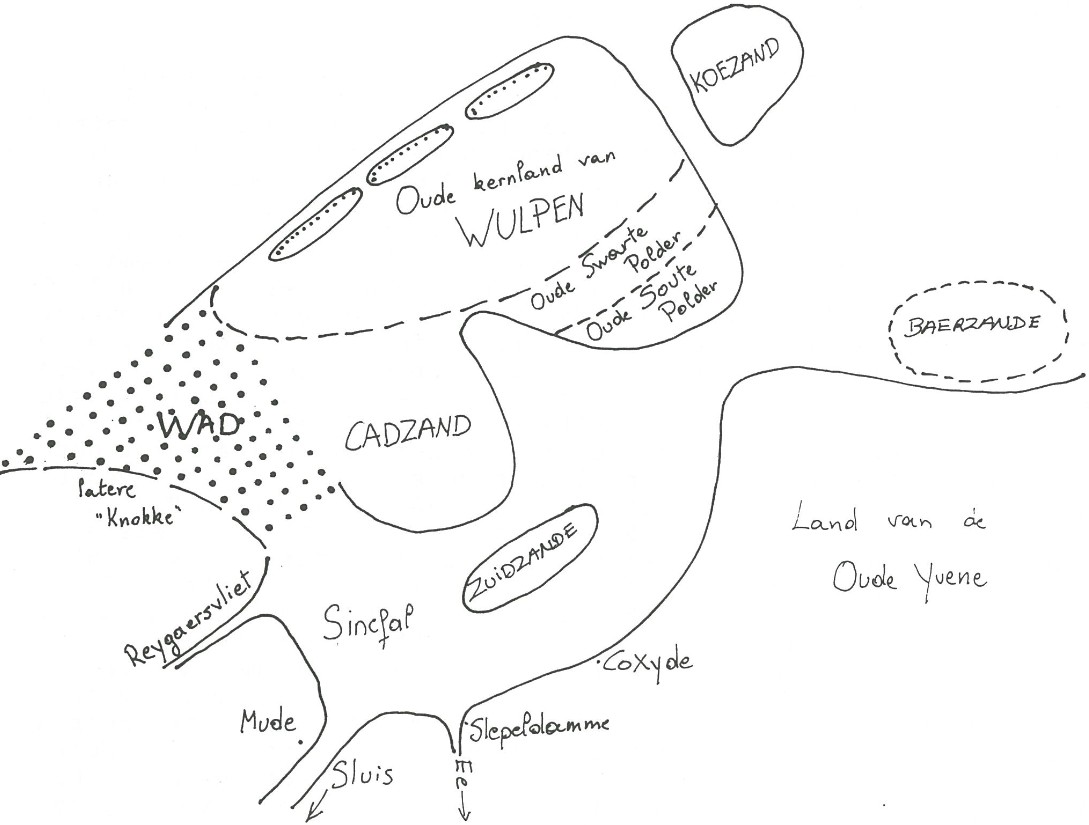 KOEZAND
Oude kernland van
WULPEN
Oude Swarte
Polder
Oude Soute
Polder
BAERZANDE
WAD
CADZAND
latere
"Knokke"
Land van de
Oude Yvene
ZUIDZANDE
Reygaersvliet
Sincfal
Coxyde
Mude
Slepeldamme
Sluis
Ee